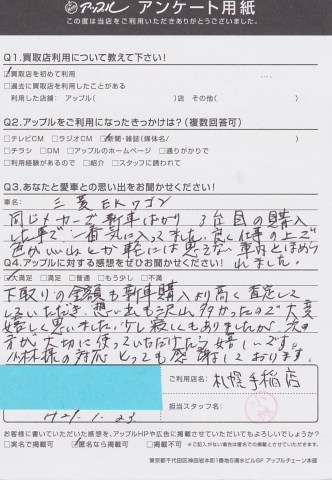 アップル アンケート用紙
この度は当店をご利用いただきありがとうございました。
Q1.買取店利用について教えて下さい!
☑買取店を初めて利用
□過去に買取店を利用したことがある
利用した店舗: アップル( )店 その他( )
Q2.アップルをご利用になったきっかけは?(複数回答可)
□テレビCM □ラジオCM ☑新聞・雑誌(媒体名/ )
□チラシ □DM □アップルのホームページ □通りがかりで
□利用経験があるので □紹介 □スタッフに誘われて
Q3.あなたと愛車との思い出をお聞かせください!
車名: 三菱 EKワゴン
同じメーカーで新車ばかり 3台目の購入
した車で一番気に入ってました。良く仕事の上で
色がいいねとか 軽には思えない車内とほめら
れました。
Q4.アップルに対する感想をぜひお聞かせください!
☑大満足 □満足 □普通 □もう少し □不満
下取りの金額も新車購入より高く査定して
もらいただき、思い出も沢山多かったので大変
嬉しく思いました。少し寂しくもありましたが、次の
方が大切に使っていただけたら嬉しいです。
小林様の対応 とっても感謝しております。
ご利用店名: 札幌手稲店
担当スタッフ名:
H21.1.23
お客様に書いていただいた感想を、アップルHPや広告に掲載させていただいてもよろしいでしょうか?
□実名で掲載可 ☑匿名なら掲載可 □掲載不可 ※ご記入がない場合は匿名での掲載とさせていただきます。
東京都千代田区神田岩本町1番地5清水ビル6F アップルチェーン本部